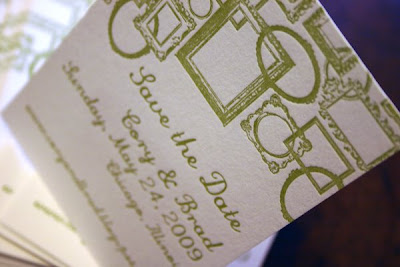 Save the Date
Cory & Brad
Sunday, May 24, 2009
Chicago, Illinois